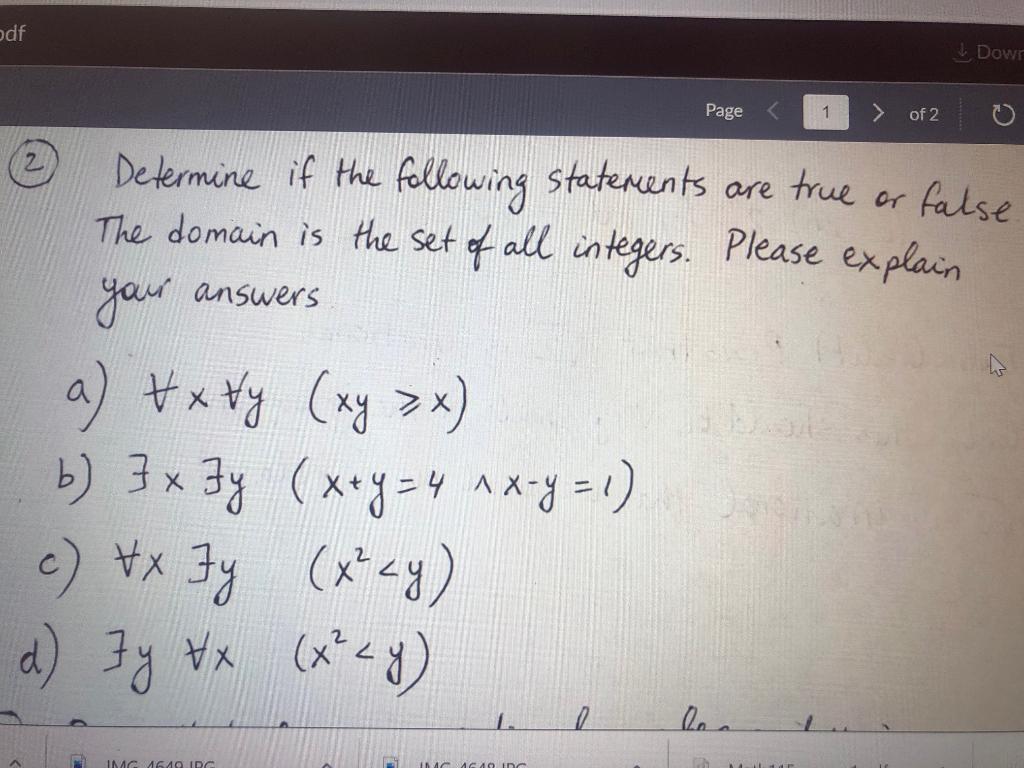 Down
Page < 1 > of 2
② Determine if the following statements are true or false
The domain is the set of all integers. Please explain
your answers
a) ∀x ∀y (xy ⩾ x)
b) ∃x ∃y (x+y=4 ∧ x-y=1)
c) ∀x ∃y (x²<y)
d) ∃y ∀x (x²<y)